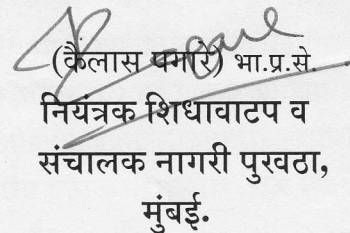 (कैलास पगारे) भा.प्र.से.
नियंत्रक शिधावाटप व
संचालक नागरी पुरवठा,
मुंबई.